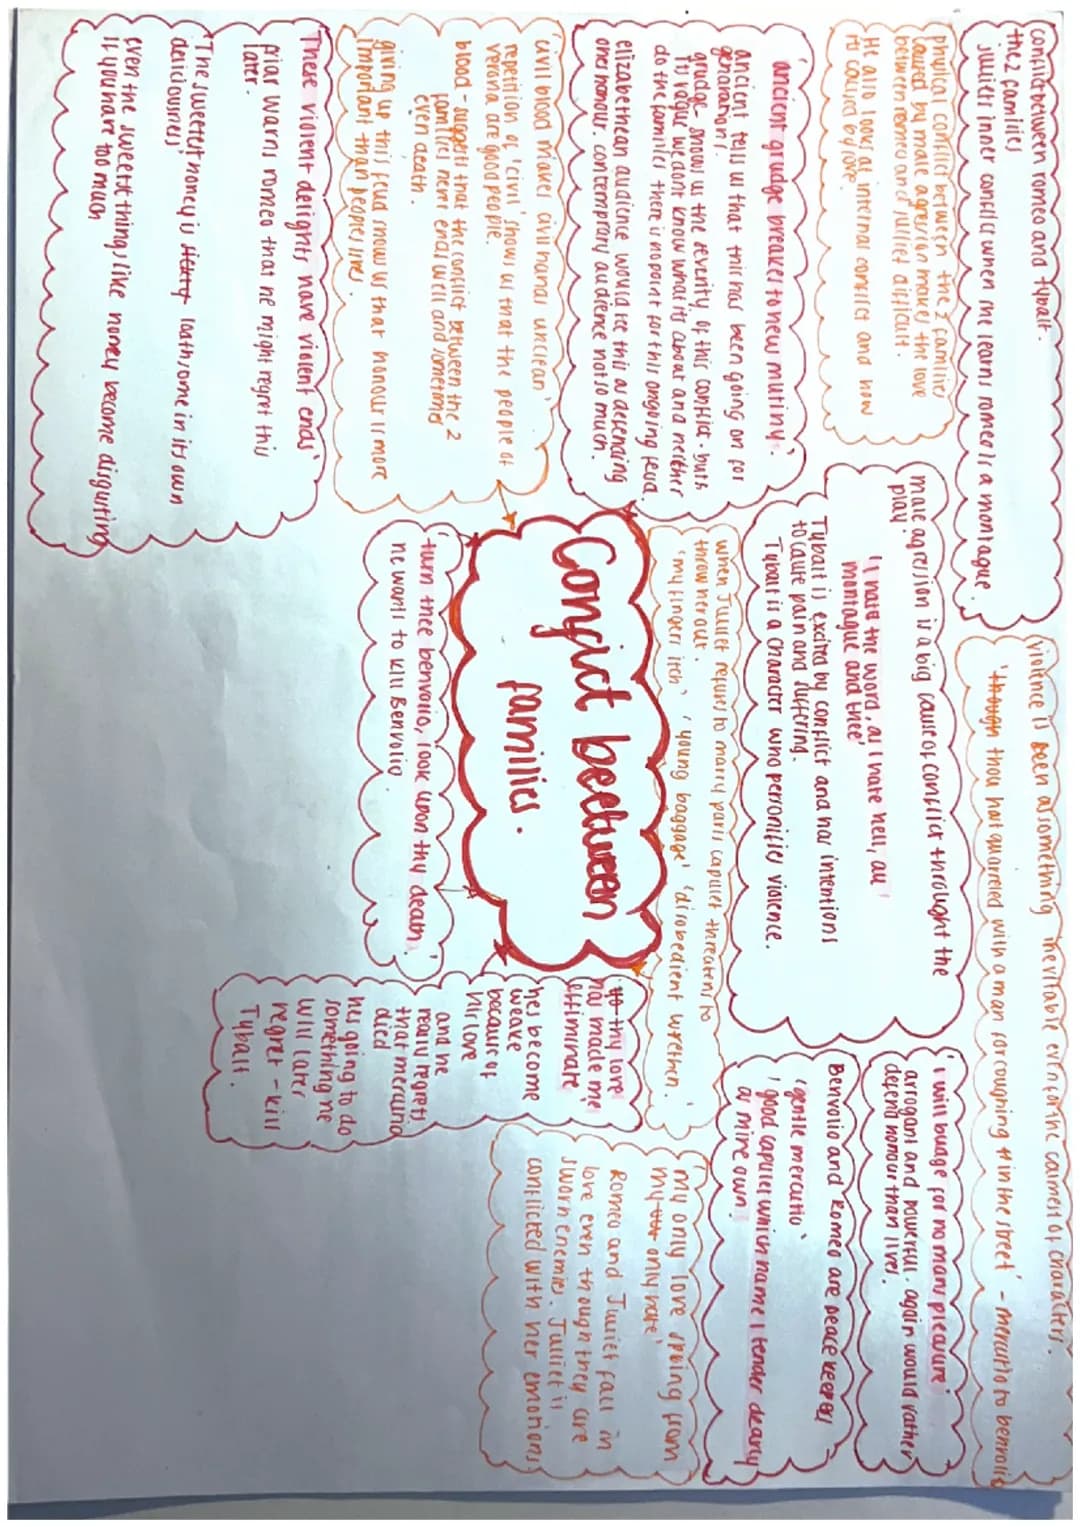 conflict between romeo and tybalt.
the 2 families
Juliets inner conflict when she learns romeo is a montague.
physical conflict between the 2 families
caused by male agression makes the love
between romeo and julliet difficult.
He also looks at internal conflict and how
its caused by love.
'ancient grudge breakes to new mutiny'.
ancient tells us that this has been going on for
genarations.
grudge - shows us the severity of this conflict - but
its vague we dont know what its about and neither
do the families there is no point for this ongoing feud
elizabethean audience would see this as defending
ones honour. contemporary audience not so much.
'civil blood makes civil hands unclean'
repetition of 'civil' shows us that the people of
verona are good people.
blood - suggests that the conflict between the 2
families never ends well and sometimes
even death.
giving up this feud shows us that honour is more
important than peoples lives.
'These violent delights have violent ends'
friar warns romeo that he might regret this
later.
'The sweetest honey is loathsome in its own
deliciousnes'
even the sweetest things like honey become disgusting
if you have too much
Violence is seen as something inevitable even for the calmest of characters.
'though thou hast quarreled with a man for coughing in the street' - mercutio to benvolio
male agression is a big cause of conflict throught the
play.
'I hate the word, as I hate hell, all
montague and thee'
Tybalt is excited by conflict and has intentions
to cause pain and suffering.
Tybalt is a character who personifies violence.
when Juliet refuses to marry paris capulet threatens to
throw her out.
'my fingers itch', 'young baggage' 'disobedient wrethen.'
Conflict between
families.
'turn thee benvolio, look upon thy death'.
he wants to kill Benvolio.
'I will budge for no mans pleasure'
arrogant and powerful. again would rather
defend honour than lives.
Benvolio and Romeo are peace keepers
'gentle mercutio'
'good capulet which name I tender dearly
as mine own'
thy love
has made me
effiminate
hes become
weake
because of
his love
and he
really regrets
that mercutio
died
hes going to do
something he
will later
regret - kill
Tybalt.
'my only love spring from
my only hate'
Romeo and Juliet fall in
love even though they are
sworn enemies. Juliet is
conflicted with her emotions.